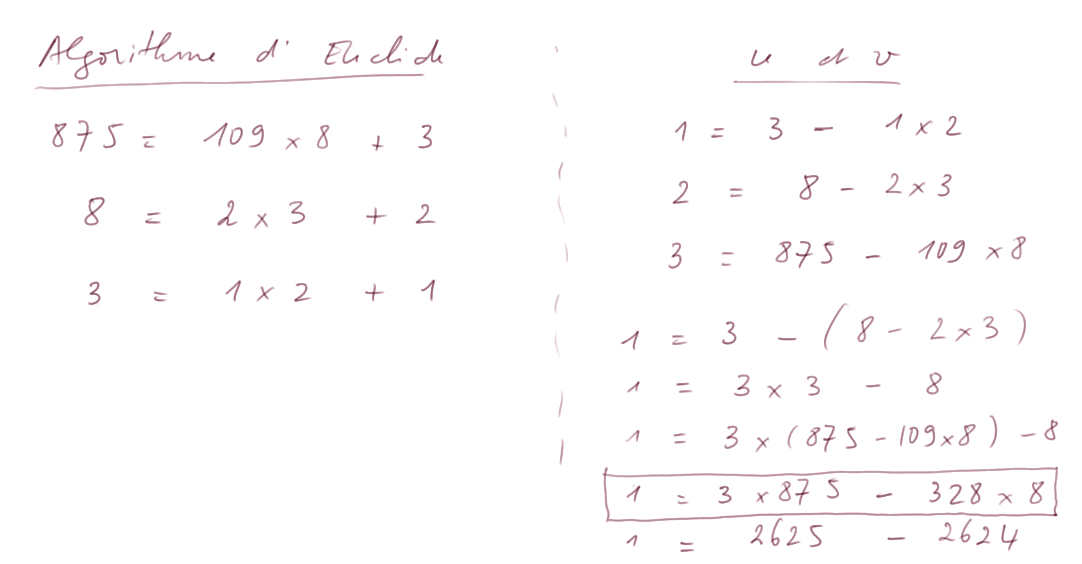 Algorithme d' Euclide
875 = 109 × 8 + 3
8 = 2 × 3 + 2
3 = 1 × 2 + 1
u et v
1 = 3 - 1 × 2
2 = 8 - 2 × 3
3 = 875 - 109 × 8
1 = 3 - ( 8 - 2 × 3 )
1 = 3 × 3 - 8
1 = 3 × ( 875 - 109 × 8 ) - 8
1 = 3 × 875 - 328 × 8
1 = 2625 - 2624